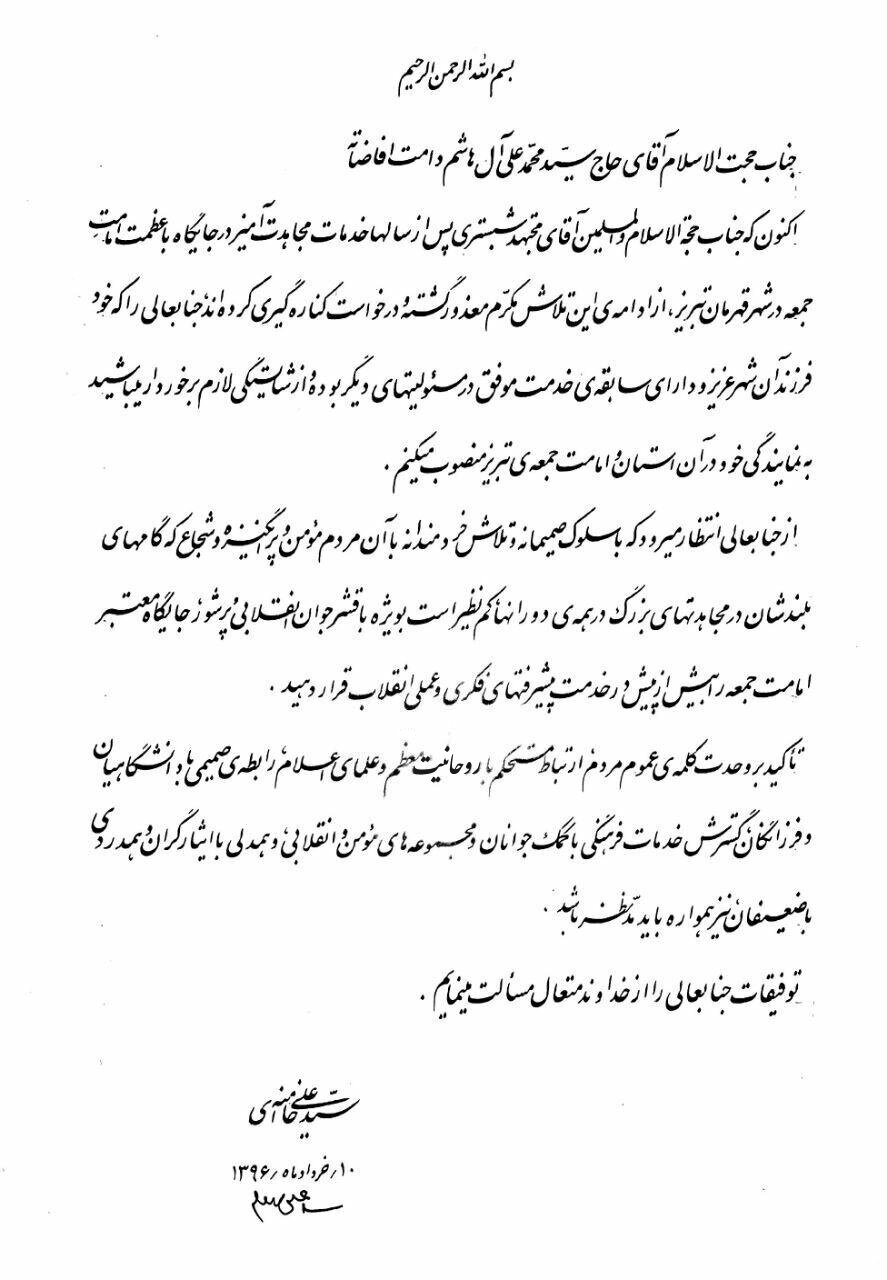 بسم الله الرحمن الرحیم
جناب حجت الاسلام آقای حاج سید محمد علی آل هاشم دامت افاضاته
اکنون که جناب حجة الاسلام والمسلمین آقای مجتهد شبستری پس از سالها خدمات مجاهدت آمیز در جایگاه باعظمت امامت
جمعه در شهر قهرمان تبریز، از ادامه‌ی این تلاش مکرّم معذور گشته و درخواست کناره گیری کرده‌اند، جنابعالی را که خود
فرزند آن شهر عزیز و دارای سابقه‌ی خدمت موفق در مسئولیتهای دیگر بوده و از شایستگی لازم برخوردار میباشید
به نمایندگی خود در آن استان و امامت جمعه‌ی تبریز منصوب میکنم.
از جنابعالی انتظار میرود که با سلوک صمیمانه و تلاش خردمندانه با آن مردم مؤمن و پرانگیزه و شجاع که گامهای
بلندشان در مجاهدتهای بزرگ در همه‌ی دورانها کم نظیر است بویژه با قشر جوان انقلابی و پرشور، جایگاه معتبر
امامت جمعه را بیش از پیش در خدمت پیشرفتهای فکری و عملی انقلاب قرار دهید.
تأکید بر وحدت کلمه‌ی عموم مردم، ارتباط مستحکم با روحانیت معظم و علمای اعلام، رابطه‌ی صمیمی با دانشگاهیان
و فرزانگان، گسترش خدمات فرهنگی با کمک جوانان و مجموعه‌های مؤمن و انقلابی، و همدلی با ایثارگران و همدردی
با ضعیفان نیز همواره باید مدّ نظر باشد.
توفیقات جنابعالی را از خداوند متعال مسألت مینمایم.
سیّد علی خامنه‌ای
۱۰/خرداد ماه/۱۳۹۶